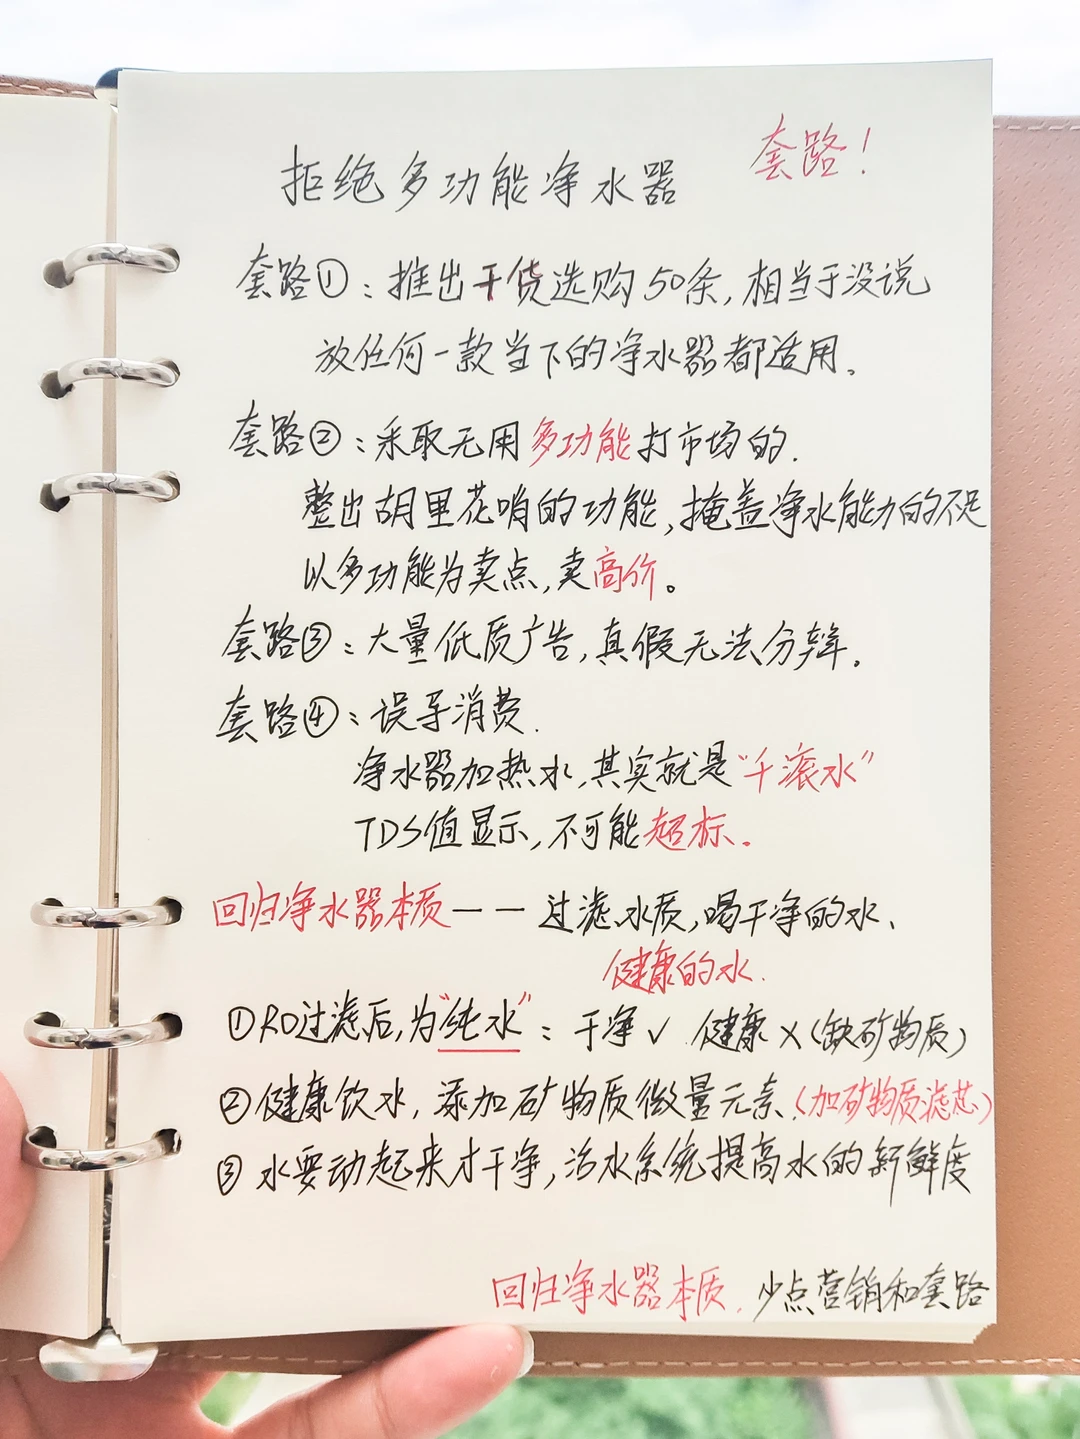 拒绝多功能净水器 套路！
套路①：推出干货选购50条，相当于没说
放任何一款当下的净水器都适用。
套路②：采取无用多功能打市场的.
整出胡里花哨的功能，掩盖净水能力的不足
以多功能为卖点，卖高价。
套路③：大量低质广告，真假无法分辨.
套路④：误导消费.
净水器加热水，其实就是“千滚水”
TDS值显示，不可能超标。
回归净水器本质——过滤水质，喝干净的水、
健康的水.
①RO过滤后，为“纯水”：干净✓ 健康×（缺矿物质）
②健康饮水，添加矿物质微量元素.（加矿物质滤芯）
③水要动起来才干净，活水系统提高水的新鲜度
回归净水器本质. 少点营销和套路